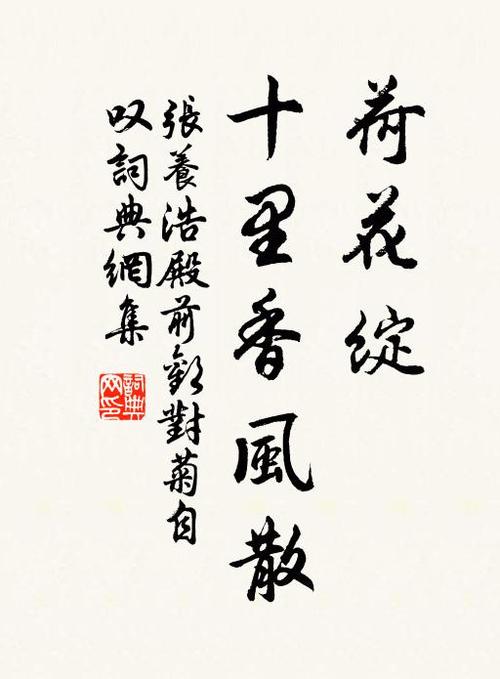 荷花綻
十里香風散
張養浩殿前歡對菊自
嘆詞典網集
詞典
网印